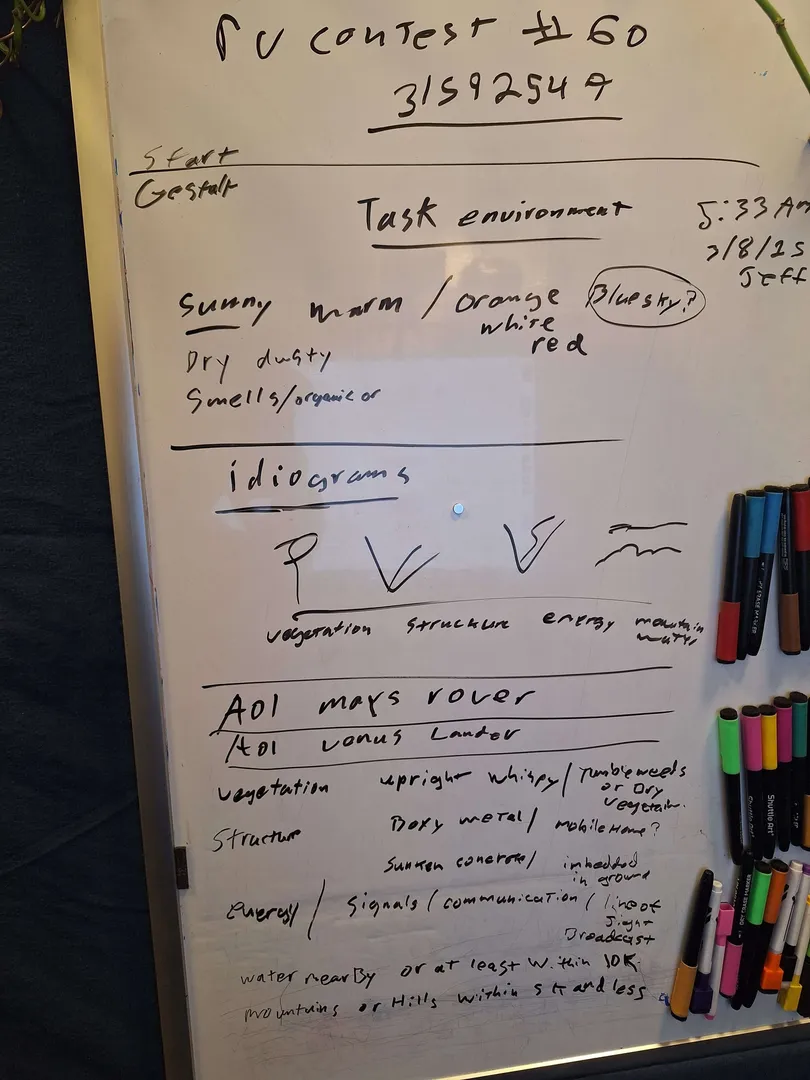 RV contest #60
31592547
Start
Gestalt
Task environment
5:33 Am
2/8/25
Jeff
Sunny warm / orange Bluesky?
white
red
Dry dusty
Smells/organic or
idiograms
vegetation structure energy mountain
water
AOI mars rover
AOI venus Lander
vegetation upright whispy/Tumbleweeds
or Dry
vegetain.
Structure Boxy metal/ mobile Home?
Sunken concrete/ imbedded
in ground
energy/ Signals/communication/line of
Sight
Broadcast
water near By or at least within 10K
mountains or Hills within 5K and less
SHUTTLE ART
Shuttle Art
DRY ERASE MARKER